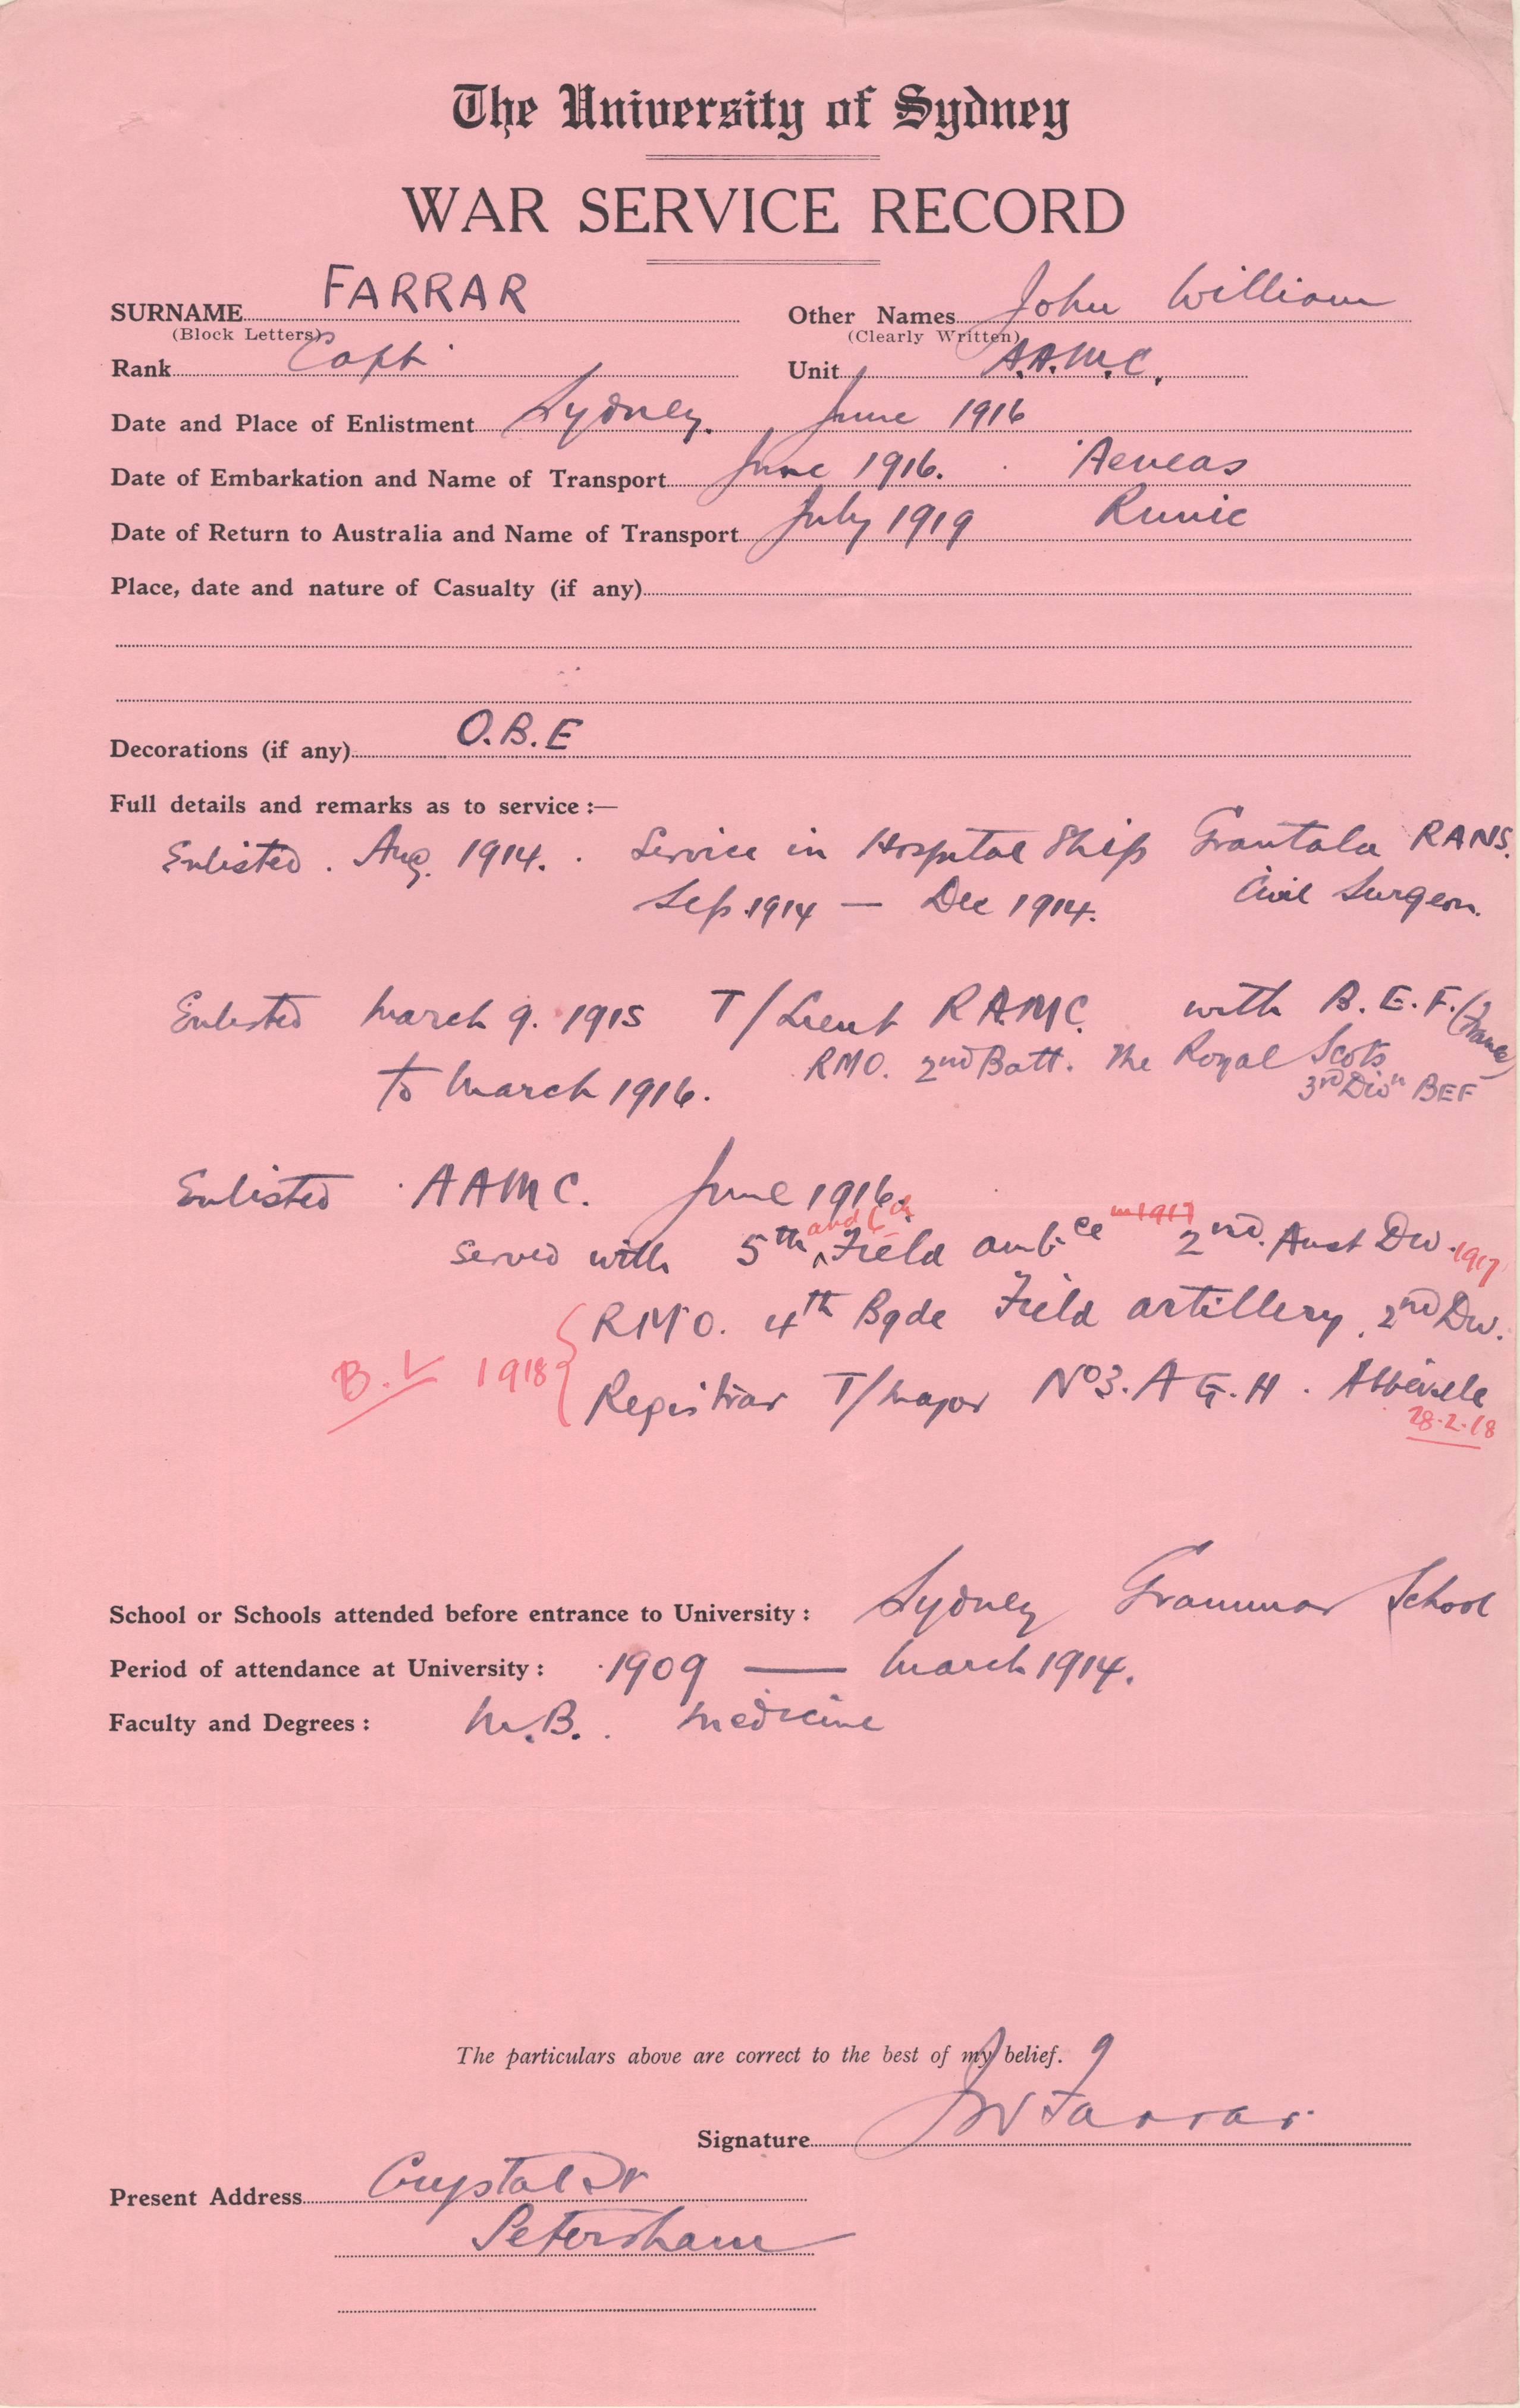 The University of Sydney
WAR SERVICE RECORD
SURNAME FARRAR Other Names John William
(Block Letters) (Clearly Written)
Rank Capt. Unit A.A.M.C.
Date and Place of Enlistment Sydney. June 1916
Date of Embarkation and Name of Transport June 1916. Aeneas
Date of Return to Australia and Name of Transport July 1919 Runic
Place, date and nature of Casualty (if any)
Decorations (if any) O.B.E
Full details and remarks as to service :—
Enlisted. Aug. 1914. Service in Hospital Ship Grantala RANS.
Sep. 1914 — Dec 1914. Civil Surgeon.
Enlisted March 9. 1915 T/Lieut RAMC. with B.E.F. (France)
to March 1916. RMO. 2nd Batt. The Royal Scots
3rd Divn BEF
Enlisted AAMC. June 1916.
and 6th in 1917
served with 5th Field ambce 2nd. Aust Div. 1917
RMO. 4th Bgde Field artillery, 2nd Div.
B.V 1918
Registrar T/Major No3. A.G.H. Abbeville
28.2.18
School or Schools attended before entrance to University : Sydney Grammar School
Period of attendance at University : 1909 — March 1914.
Faculty and Degrees : M.B. Medicine
The particulars above are correct to the best of my belief.
Signature JW Farrar
Present Address Crystal St
Petersham